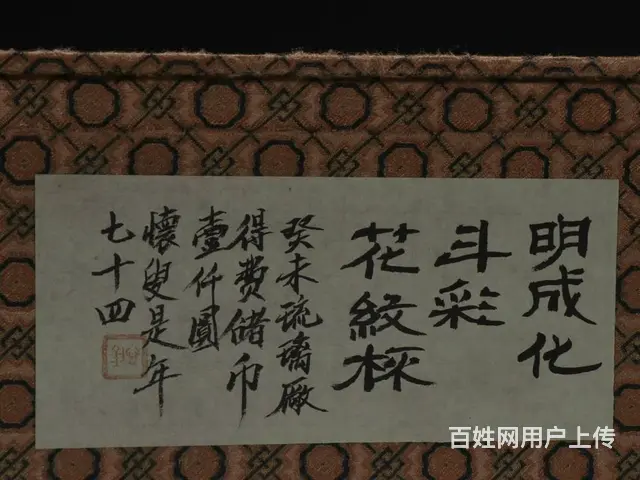 明成化
斗彩
花紋杯
癸未琉璃厰
得費儲币
壹仟圓
懷叟是年
七十四
百姓网用户上传